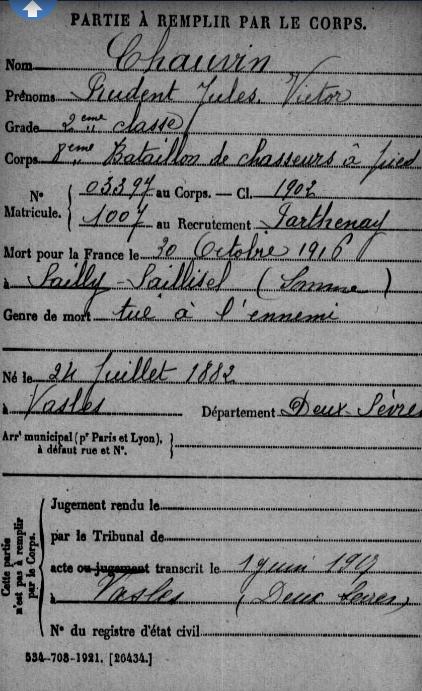 PARTIE À REMPLIR PAR LE CORPS.
Nom Chauvin
Prénoms Prudent Jules, Victor
Grade 2ème classe
Corps 8ème Bataillon de chasseurs à pied
N° Matricule. { 03397 au Corps. — Cl. 1902
1007 au Recrutement Parthenay
Mort pour la France le 30 Octobre 1916
à Sailly-Saillisel (Somme)
Genre de mort tué à l'ennemi
Né le 24 Juillet 1882
à Vasles Département Deux-Sèvres
Arrt municipal (pr Paris et Lyon), à défaut rue et N°. }
Cette partie n'est pas à remplir par le Corps.
Jugement rendu le
par le Tribunal de
acte ou jugement transcrit le 1 juin
à Vasles (Deux Sèvres)
N° du registre d'état civil
534-708-1921. [26434.]